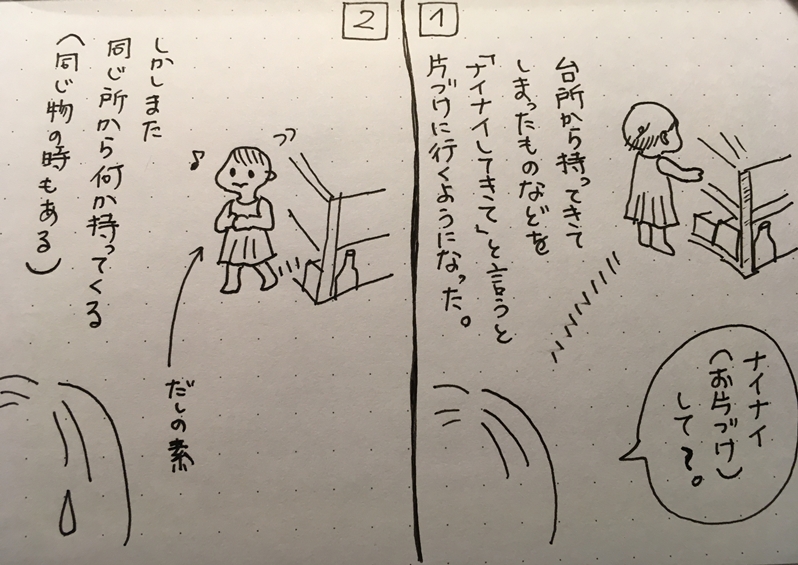 1
台所から持ってきて
しまったものなどを
「ナイナイしてきて」と言うと
片づけに行くようになった。
ナイナイ
(お片づけ)
して〜。
2
しかしまた
同じ所から何か持ってくる
(同じ物の時もある)
だしの素